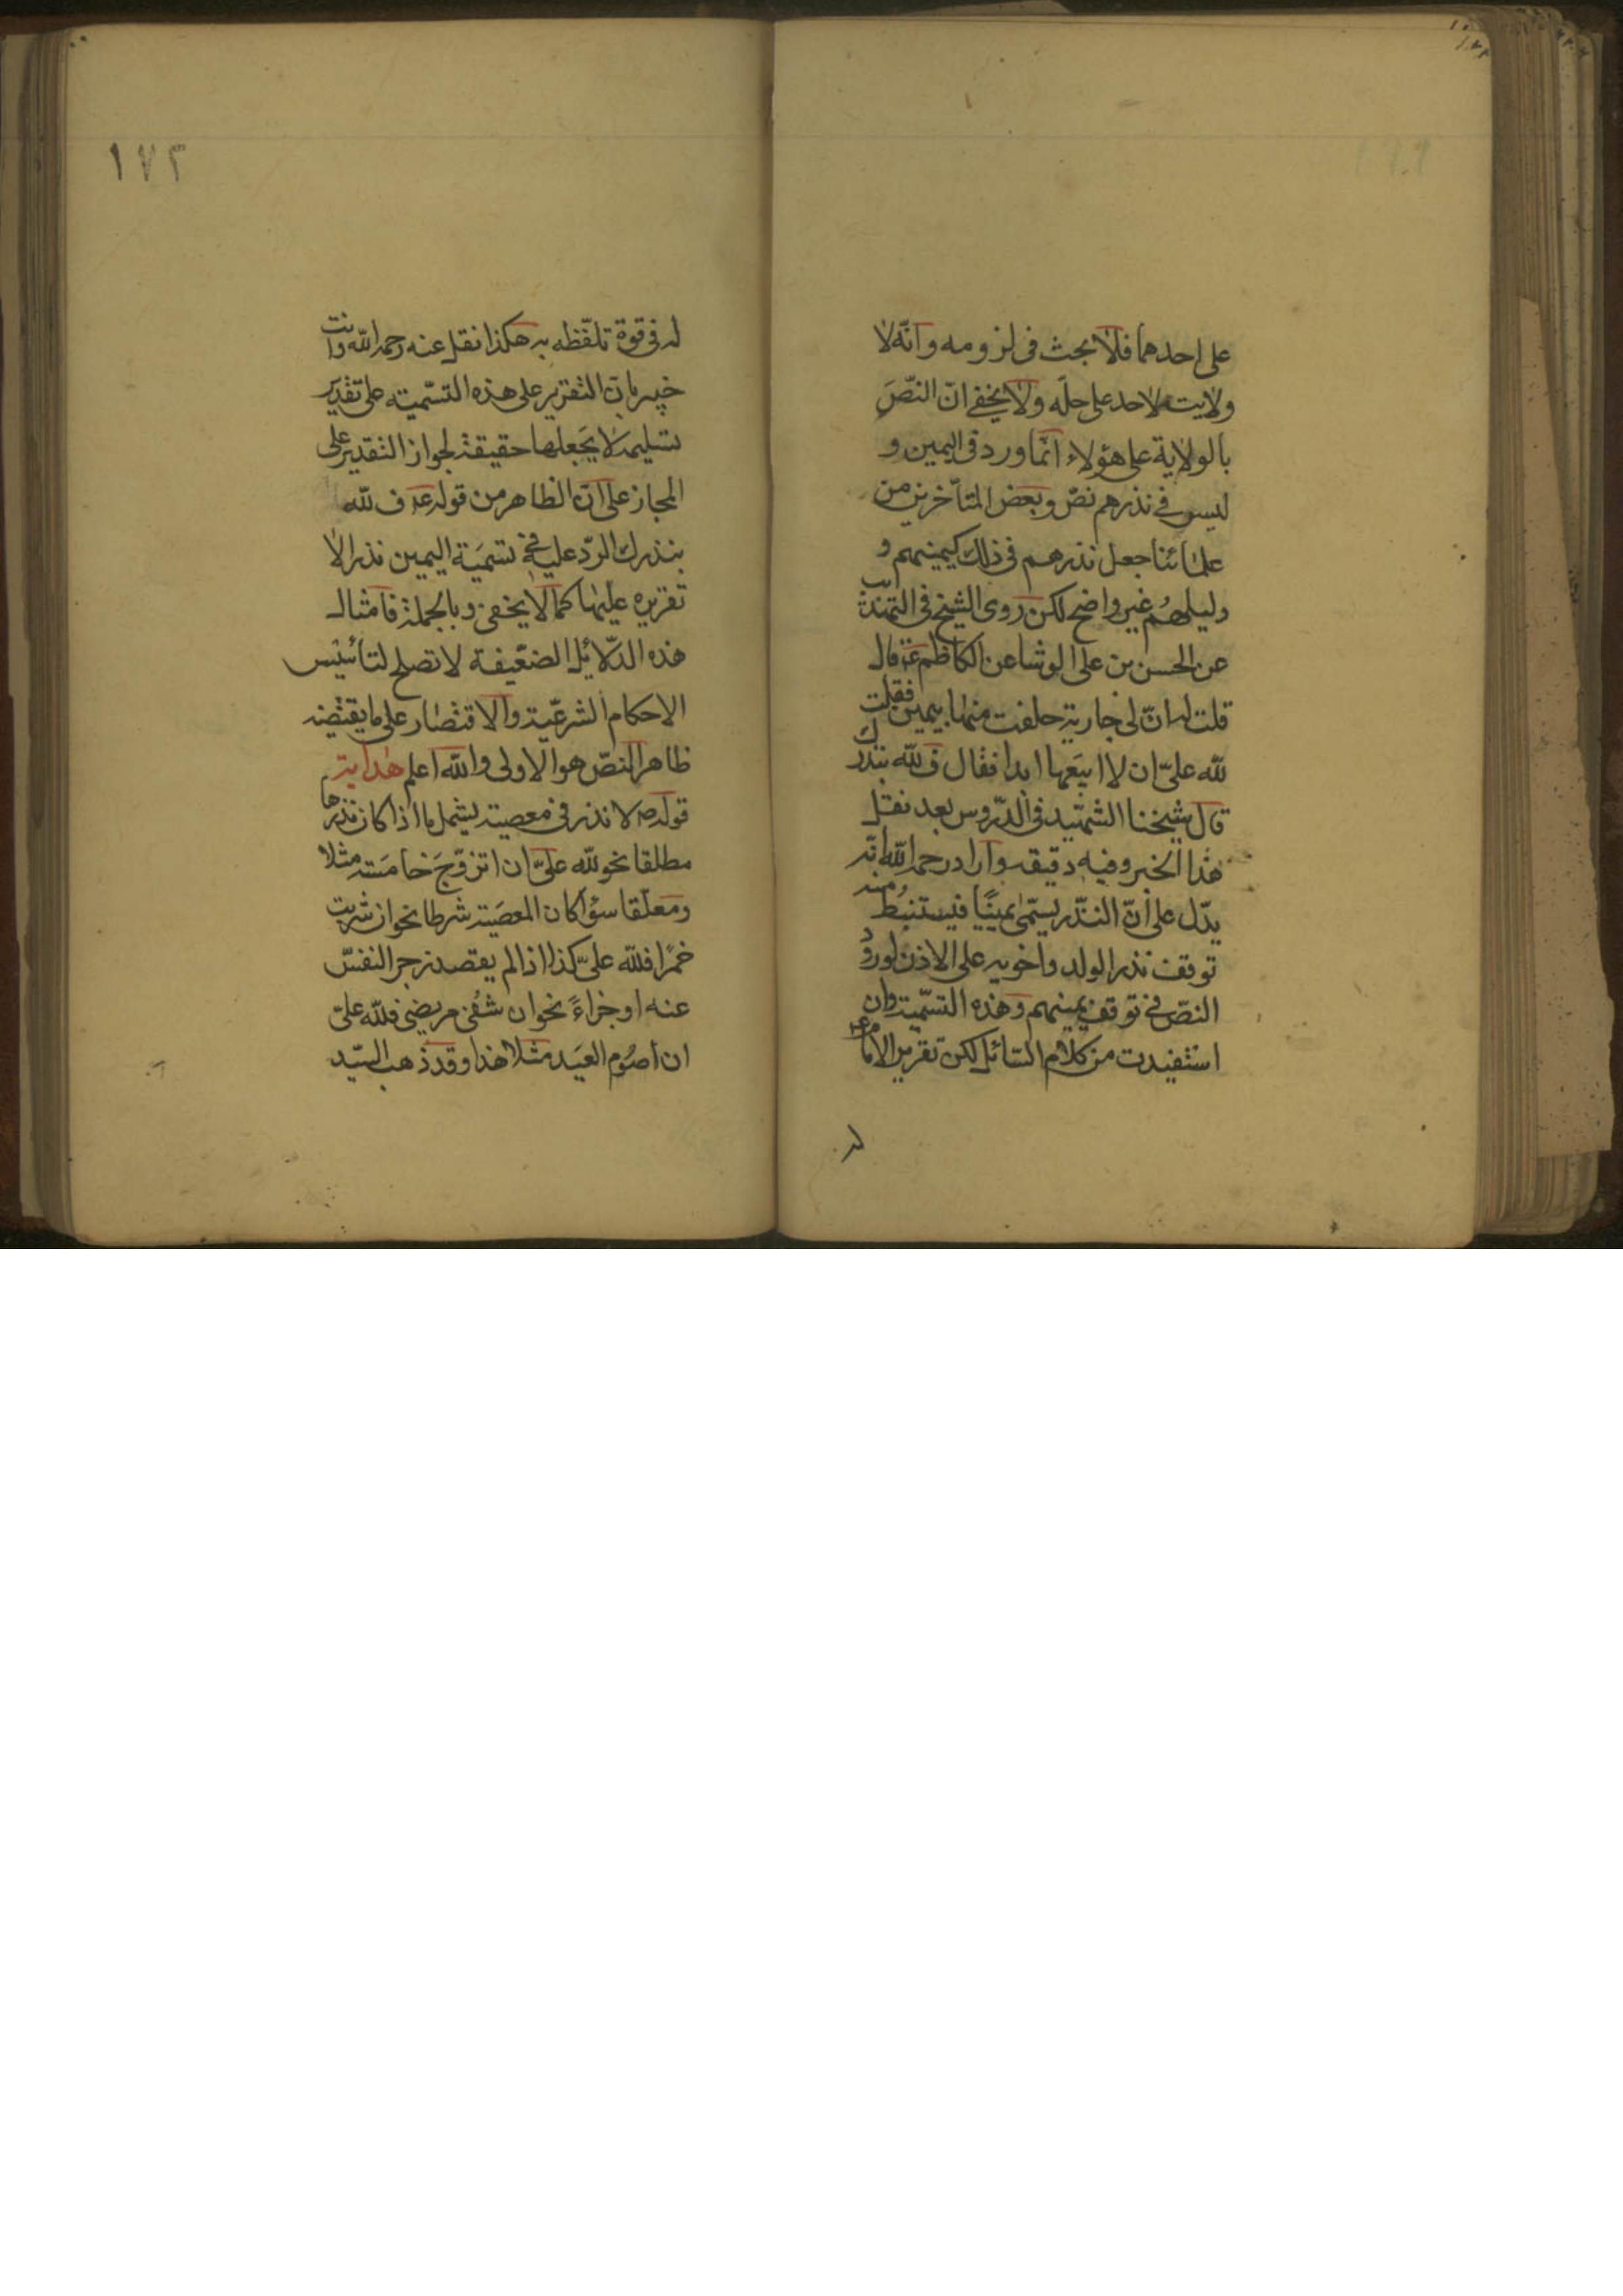 على احدهما فلا بحث فى لزومه وانّه لا
ولاية لاحد على حلّه ولا يخفى انّ النصّ
بالولاية على هؤلاء انّما ورد فى اليمين و
ليس فى نذرهم نصّ وبعض المتأخرين من
علمائنا جعل نذرهم فى ذلك كيمينهم و
دليلهم غير واضح لكن روى الشيخ فى التهذيب
عن الحسن بن على الوشا عن الكاظم ع قال
قلت له انّ لى جارية حلفت منها بيمين فقلت
لله علىّ ان لا ابيعها ابدا فقال ف لله بنذرك
قال شيخنا الشهيد فى الدّروس بعد نقل
هذا الخبر وفيه دقيقه واراد رحمه الله انّه
يدّل على انّ النّذر يسمّى يمينًا فيستنبط منه
توقف نذر الولد واخويه على الاذن لورود
النصّ فى توقف يمينهم وهذه التسّمية وان
استفيدت من كلام السّائل لكن تقرير الامام ع
له
١٧٢
له فى قوة تلفّظه به هكذا نقل عنه رحمه الله وانت
خبير بان التقرير على هذه التسّمية على تقدير
تسليمه لا يجعلها حقيقة لجواز التقدير على
المجاز على انّ الظاهر من قوله ع ف لله
بنذرك الردّ عليه فى تسمية اليمين نذرا لا
تقريره عليها كما لا يخفى وبالجملة فامثال
هذه الدّلائل الضعيفة لا تصلح لتأسيس
الاحكام الشرعيّة والاقتصار على ما يقتضيه
ظاهر النصّ هو الاولى والله اعلم هداية
قوله ص لا نذر فى معصية يشمل ما اذا كان نذرها
مطلقا نحو لله علىّ ان اتزوّج خامسة مثلا
ومعلّقا سواء كان المعصية شرطا نحو ان شربت
خمرًا فلله علىّ كذا اذا لم يقصد زجر النفس
عنه او جزاءً نحو ان شفى مريضى فلله علىّ
ان اصوم العيد مثلا هذا وقد ذهب السيّد